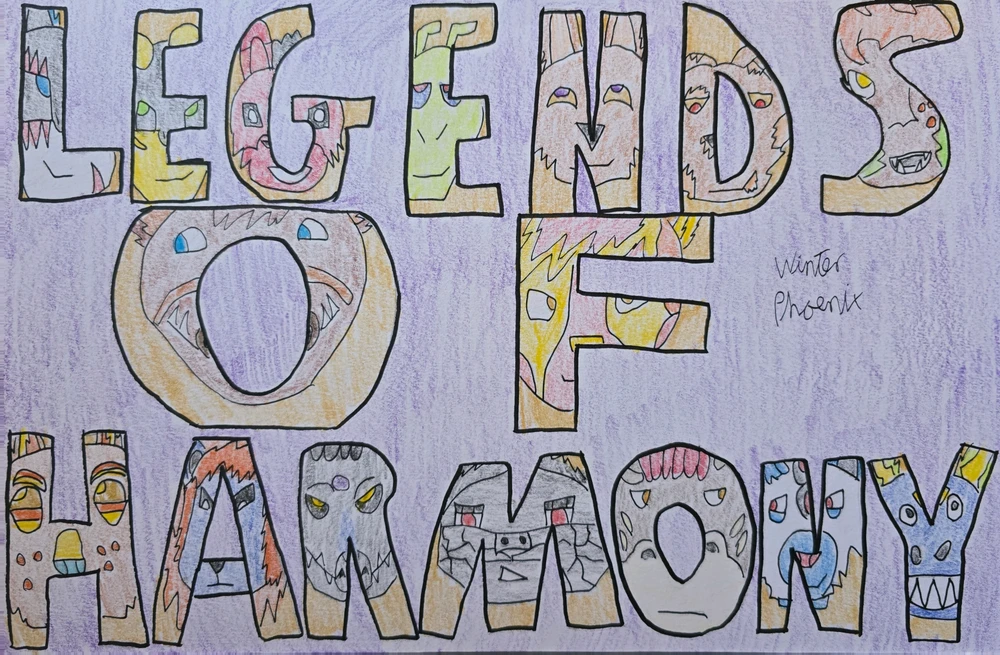 LEGENDS
OF
Winter
Phoenix
HARMONY